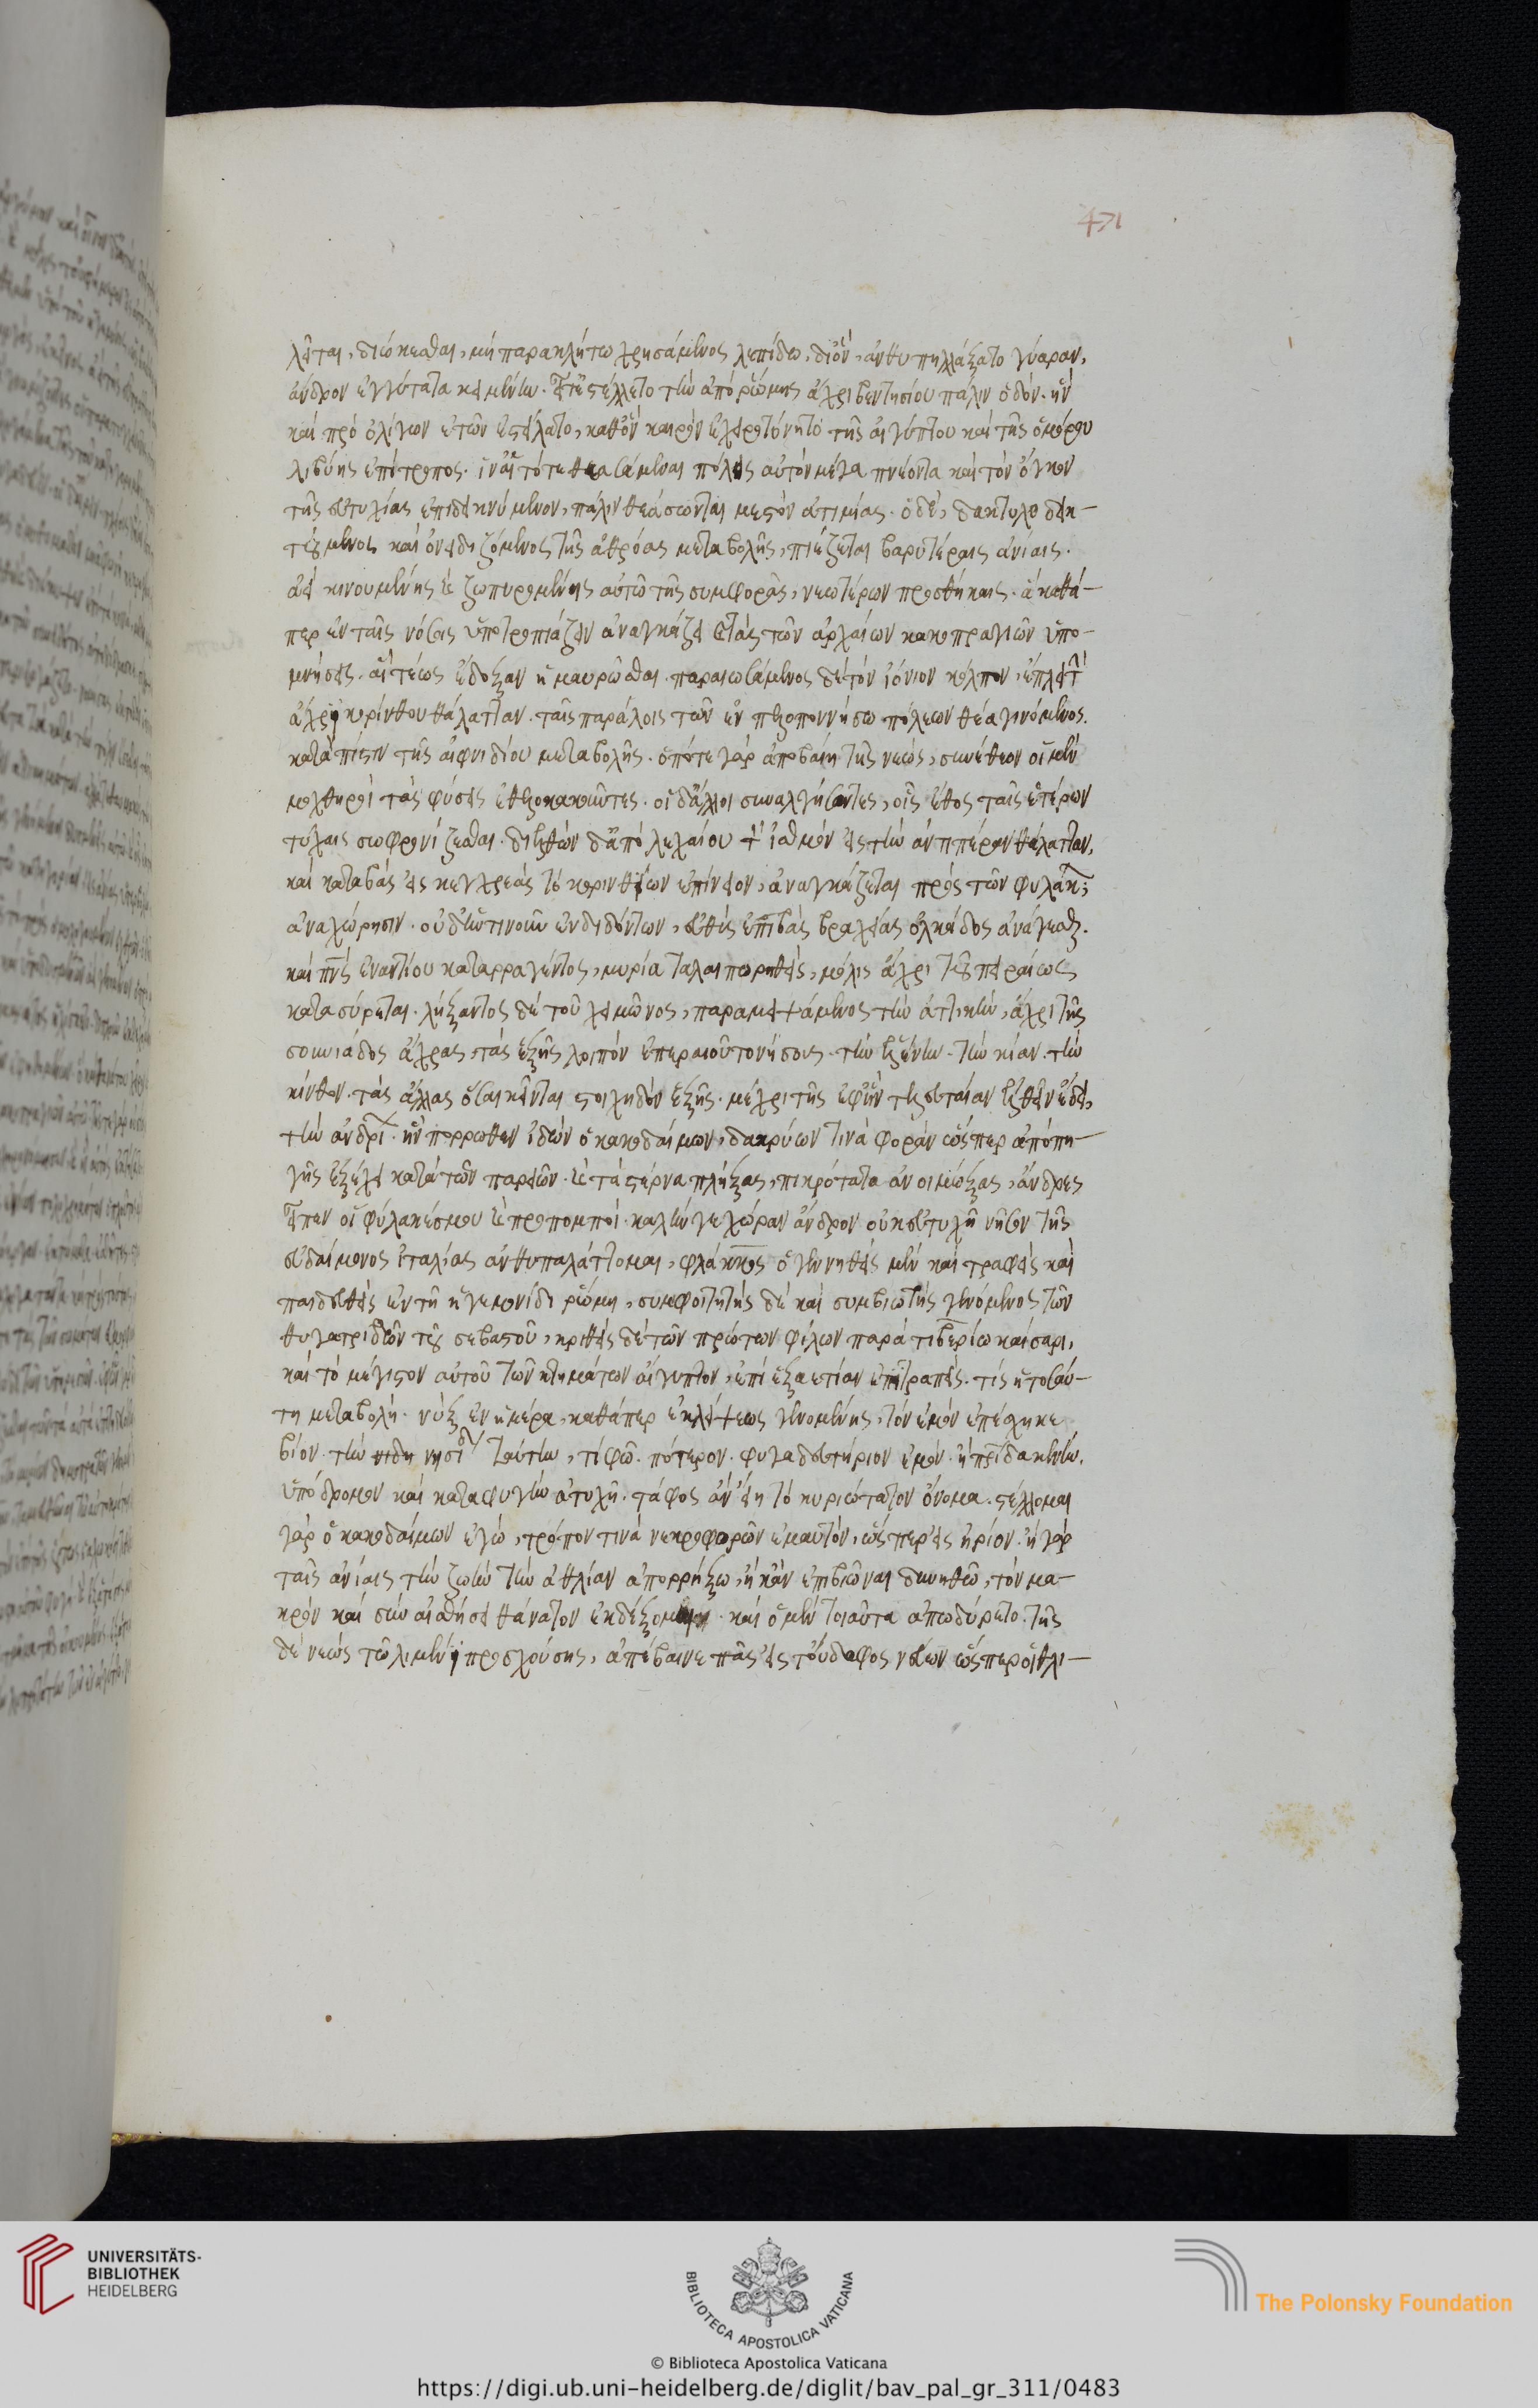 λεῖται, διώκεσθαι, μὴ παρακλήτω χρησάμενος λεπίδω, δι' ὃν, ἀνθυπηλλάξατο γύαραν,
ἄνδρον ἐγγύτατα κειμένην. εἶτ' ἐστέλλετο τὴν ἀπὸ ῥώμης ἄχρι βεντησίου πάλιν ὁδόν. ἣν
καὶ πρὸ ὀλίγων ἐτῶν ἐστείλατο, καθ' ὃν καιρὸν ἐχειροτόνητο τῆς αἰγύπτου καὶ τῆς ὁμόρου
λιβύης ἐπίτροπος. ἵν' αἱ τότε θεασάμεναι πόλεις αὐτὸν μέγα πνέοντα καὶ τὸν ὄγκον
τῆς εὐτυχίας ἐπιδεικνύμενον, πάλιν θεάσωνται μεστὸν ἀτιμίας. ὁ δὲ, δακτυλο δεικ-
τούμενος καὶ ὀνειδιζόμενος τῆς ἀθρόας μεταβολῆς, πιέζεται βαρυτέραις ἀνίαις.
ἀεὶ κινουμένης καὶ ζωπυρουμένης αὐτῶ τῆς συμφορᾶς, νεωτέρων προσθήκαις. ἃ καθά-
περ ἐν ταῖς νόσοις ὑποτροπιάζειν ἀναγκάζει καὶ τὰς τῶν ἀρχαίων κακοπραγιῶν ὑπο-
μνήσεις. αἳ τέως ἔδοξαν ἠμαυρῶσθαι. παραιωσάμενος δὲ τὸν ἰόνιον κόλπον, ἔπλει τὴν
ἄχρι κορίνθου θάλατταν. ταῖς παράλοις τῶν ἐν πελοποννήσω πόλεων θέα γινόμενος.
κατὰ πίστιν τῆς αἰφνιδίου μεταβολῆς. ὁπότε γὰρ ἀποβαίη τῆς νεώς, συνέθεον οἱ μὲν
μοχθηροὶ τὰς φύσεις ἐθελοκακοῦντες. οἱ δ' ἄλλοι συναλγήσοντες, οἷς ἔθος ταῖς ἑτέρων
τύχαις σωφρονίζεσθαι. διελθὼν δ' ἀπὸ λεχαίου τὸν ἰσθμὸν εἰς τὴν ἀντιπέραν θάλατταν,
καὶ καταβὰς εἰς κεγχρεὰς τὸ κορινθίων ἐπίνειον, ἀναγκάζεται πρὸς τῶν φυλάκων
ἀναχώρησιν. οὐδ' ἥντινοῦν ἐνδιδόντων, εὐθὺς ἐπιβὰς βραχείας ὁλκάδος ἀνάγεσθαι.
καὶ πνεύματος ἐναντίου καταρραγέντος, μυρία ταλαιπωρηθεὶς, μόλις ἄχρι τοῦ πειραίως
κατασύρεται. λήξαντος δὲ τοῦ χειμῶνος, παραμειψάμενος τὴν ἀττικὴν, ἄχρι τῆς
σουνιάδος ἄχρας, τὰς ἑξῆς λοιπὸν ἐπεραιοῦτο νήσους. τὴν ἑλένην. τὴν κίαν. τὴν
κύνθον. τὰς ἄλλας ὅσαι κεῖνται στοιχηδὸν ἑξῆς. μέχρι τῆς ἐφ' ἣν τελευταίαν ἐλθεῖν ἔδει,
τὴν ἀνδρίων. ἣν πόρρωθεν ἰδὼν ὁ κακοδαίμων, δακρύων τινὰ φορὰν ὥσπερ ἀπὸ πη-
γῆς ἐξέχει κατὰ τῶν παρειῶν. καὶ τὰ στέρνα πλήξας, πικρότατα ἀνοιμώξας, ἄνδρες
εἶπεν οἱ φύλακές μου καὶ προπομποί. καλήν γε χώραν ἄνδρον οὐκ εὐτυχῆ νῆσον τῆς
εὐδαίμονος ἰταλίας ἀνθυπαλάττομαι, φλάκκος ὁ γεννηθεὶς μὲν καὶ τραφεὶς καὶ
παιδευθεὶς ἐν τῆ ἡγεμονίδι ῥώμη, συμφοιτητὴς δὲ καὶ συμβιωτὴς γενόμενος τῶν
θυγατριδῶν τοῦ σεβαστοῦ, κριθεὶς δὲ τῶν πρώτων φίλων παρὰ τιβερίω καίσαρι,
καὶ τὸ μέγιστον αὐτοῦ τῶν κτημάτων αἴγυπτον, ἐπὶ ἑξαετίαν ἐπιτραπείς. τίς ἡ τοσαύ-
τη μεταβολή. νὺξ ἐν ἡμέρα, καθάπερ ἐκλείψεως γενομένης, τὸν ἐμὸν ἐπέσχηκε
βίον. τὴν δὴ νησί ταύτην, τί φῶ. πότερον. φυγαδευτήριον ἐμόν. ἢ πατρίδα καινὴν.
ὑπόδρομον καὶ καταφυγὴν ἀτυχῆ. τάφος ἂν εἴη τὸ κυριώτατον ὄνομα. στέλλομαι
γὰρ ὁ κακοδαίμων ἐγὼ, τρόπον τινὰ νεκροφορῶν ἐμαυτόν, ὥσπερ εἰς ἠρίον. ἢ γὰρ
ταῖς ἀνίαις τὴν ζωὴν τὴν ἀθλίαν ἀπορρήξω, ἢ κἂν ἐπιβιῶναι δυνηθῶ, τὸν μα-
κρὸν καὶ σὺν αἰσθήσει θάνατον ἐκδέξομαι. καὶ ὁ μὲν τοιαῦτα ἀπωδύρετο. τῆς
δὲ νεὼς τῶ λιμένι προσχούσης, ἀπέβαινε πᾶς εἰς τοὔδαφος νεύων ὥσπερ οἱ θλι-
471
UNIVERSITÄTS-
BIBLIOTHEK
HEIDELBERG
BIBLIOTECA APOSTOLICA VATICANA
The Polonsky Foundation
© Biblioteca Apostolica Vaticana
https://digi.ub.uni-heidelberg.de/diglit/bav_pal_gr_311/0483